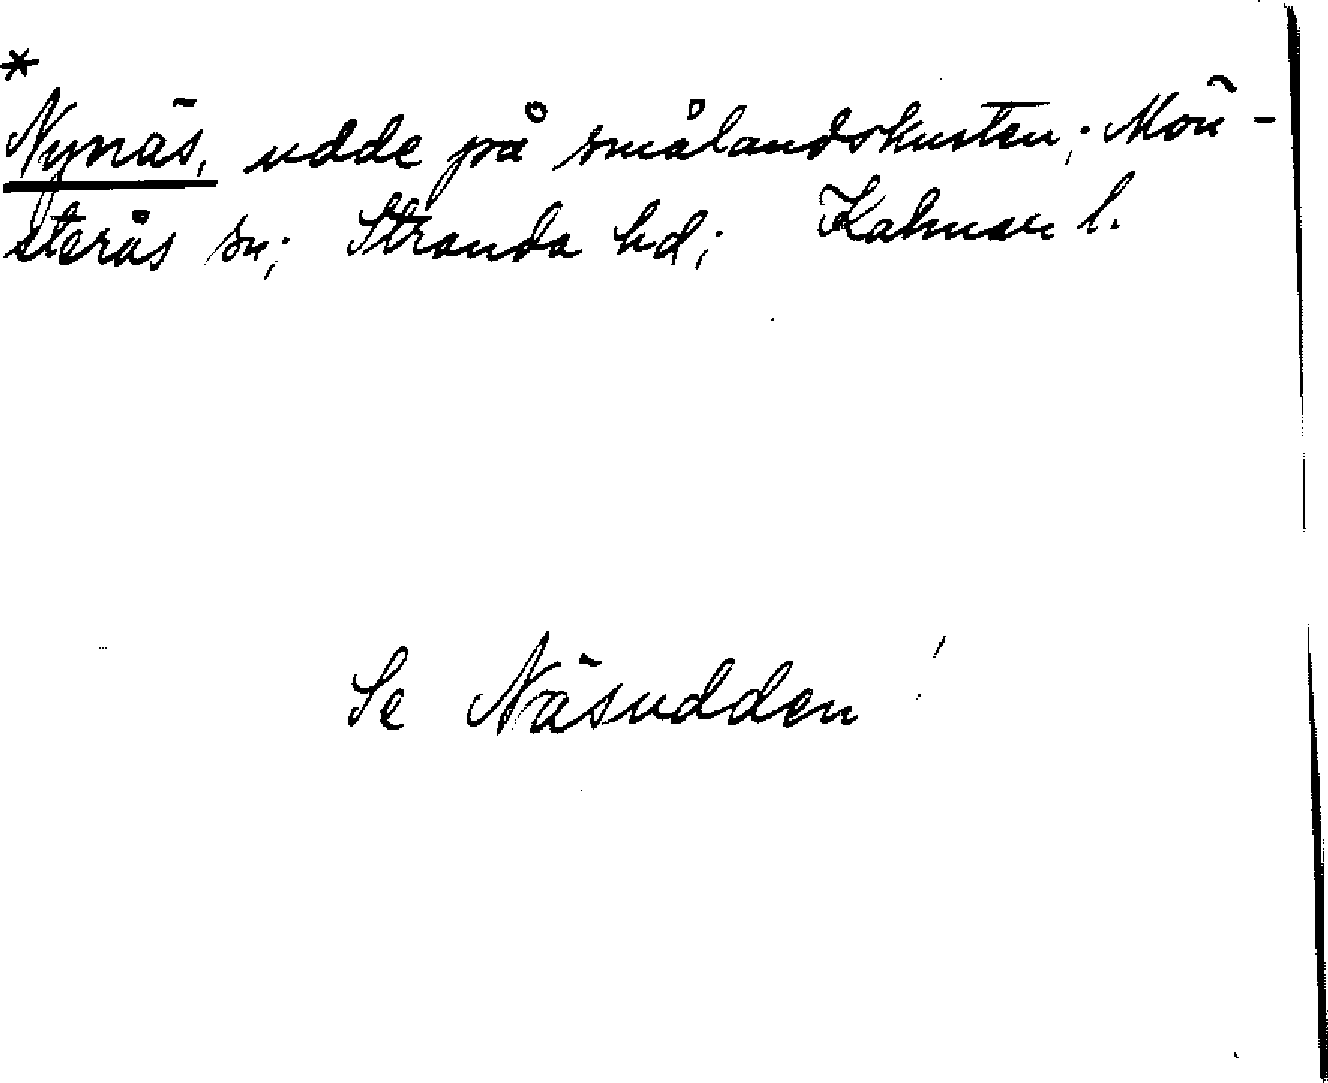 *
Nynäs, udde på smålandskusten; Mön-
sterås sn; Stranda hd; Kalmar l.
Se Näsudden!